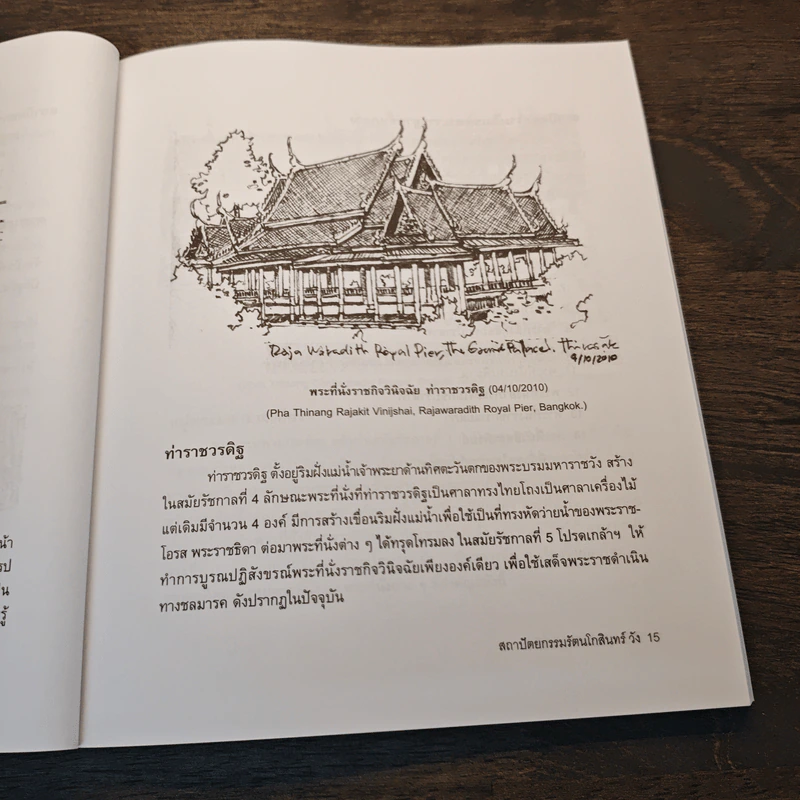 Raja Waradith Royal Pier, The Grand Palace.
4/10/2010
พระที่นั่งราชกิจวินิจฉัย ท่าราชวรดิฐ (04/10/2010)
(Pha Thinang Rajakit Vinijshai, Rajawaradith Royal Pier, Bangkok.)
ท่าราชวรดิฐ
ท่าราชวรดิฐ ตั้งอยู่ริมฝั่งแม่น้ำเจ้าพระยาด้านทิศตะวันตกของพระบรมมหาราชวัง สร้าง
ในสมัยรัชกาลที่ 4 ลักษณะพระที่นั่งที่ท่าราชวรดิฐเป็นศาลาทรงไทยโถงเป็นศาลาเครื่องไม้
แต่เดิมมีจำนวน 4 องค์ มีการสร้างเขื่อนริมฝั่งแม่น้ำเพื่อใช้เป็นที่ทรงหัดว่ายน้ำของพระราช-
โอรส พระราชธิดา ต่อมาพระที่นั่งต่าง ๆ ได้ทรุดโทรมลง ในสมัยรัชกาลที่ 5 โปรดเกล้าฯ ให้
ทำการบูรณปฏิสังขรณ์พระที่นั่งราชกิจวินิจฉัยเพียงองค์เดียว เพื่อใช้เสด็จพระราชดำเนิน
ทางชลมารค ดังปรากฏในปัจจุบัน
สถาปัตยกรรมรัตนโกสินทร์ วัง 15